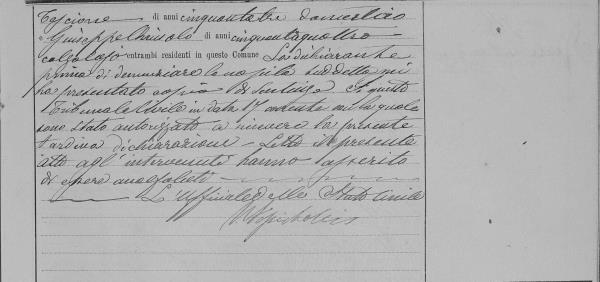 Tescione di anni cinquantatre domestico
e Giuseppe di anni cinquantaquattro
calzolajo entrambi residenti in questo Comune La dichiarante
prima di denunziare la nascita suddetta mi
ha presentato copia di sentenza di questo
Tribunale Civile in data 17 corrente con la quale
sono stato autorizzato a ricevere la presente
tardiva dichiarazione - Letto il presente
atto agl'intervenuti hanno asserito
di essere analfabeti
L'Uffiziale dello Stato Civile